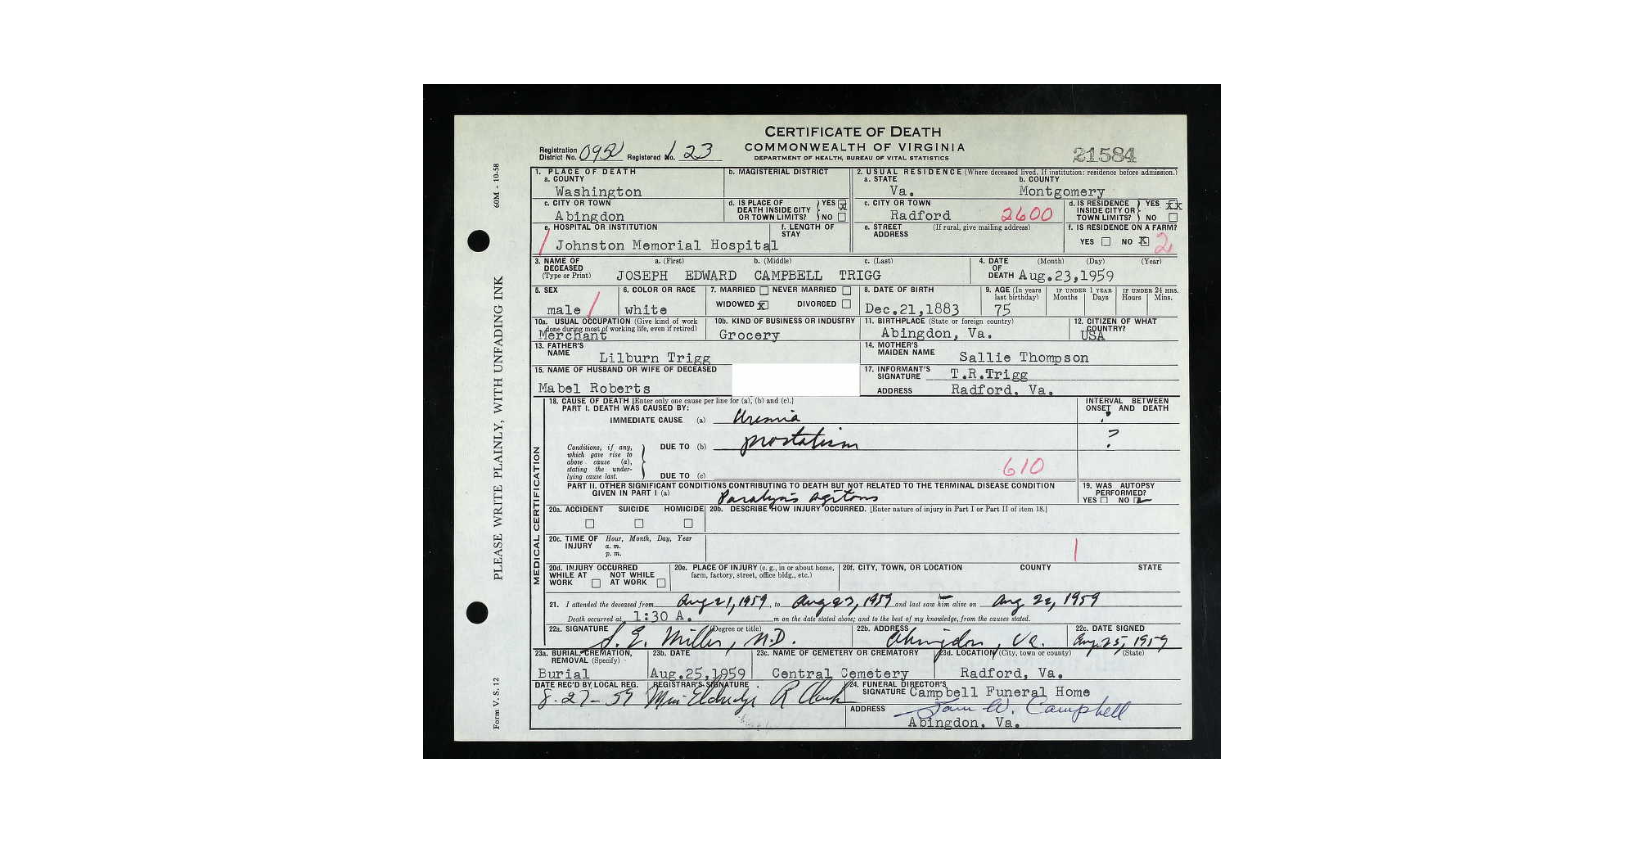 CERTIFICATE OF DEATH
COMMONWEALTH OF VIRGINIA
DEPARTMENT OF HEALTH, BUREAU OF VITAL STATISTICS
Registration District No. 0950 Registered No. 123
21584
60M - 10-58
PLEASE WRITE PLAINLY, WITH UNFADING INK
Form V. S. 12
1. PLACE OF DEATH
a. COUNTY
Washington
b. MAGISTERIAL DISTRICT
2. USUAL RESIDENCE (Where deceased lived. If institution: residence before admission.)
a. STATE
Va.
b. COUNTY
Montgomery
c. CITY OR TOWN
Abingdon
d. IS PLACE OF DEATH INSIDE CITY OR TOWN LIMITS? YES X NO
c. CITY OR TOWN
Radford 2600
d. IS RESIDENCE INSIDE CITY OR TOWN LIMITS? YES XX NO
e. HOSPITAL OR INSTITUTION
Johnston Memorial Hospital
f. LENGTH OF STAY
e. STREET ADDRESS (If rural, give mailing address)
f. IS RESIDENCE ON A FARM?
YES NO X 2
3. NAME OF DECEASED (Type or Print)
a. (First) b. (Middle) c. (Last)
JOSEPH EDWARD CAMPBELL TRIGG
4. DATE OF DEATH (Month) (Day) (Year)
Aug.23,1959
5. SEX
male
6. COLOR OR RACE
white
7. MARRIED NEVER MARRIED
WIDOWED X DIVORCED
8. DATE OF BIRTH
Dec.21,1883
9. AGE (In years last birthday)
75
IF UNDER 1 YEAR
Months Days
IF UNDER 24 HRS.
Hours Mins.
10a. USUAL OCCUPATION (Give kind of work done during most of working life, even if retired)
Merchant
10b. KIND OF BUSINESS OR INDUSTRY
Grocery
11. BIRTHPLACE (State or foreign country)
Abingdon, Va.
12. CITIZEN OF WHAT COUNTRY?
USA
13. FATHER'S NAME
Lilburn Trigg
14. MOTHER'S MAIDEN NAME
Sallie Thompson
15. NAME OF HUSBAND OR WIFE OF DECEASED
Mabel Roberts
17. INFORMANT'S SIGNATURE T.R.Trigg
ADDRESS Radford, Va.
MEDICAL CERTIFICATION
18. CAUSE OF DEATH [Enter only one cause per line for (a), (b) and (c).]
PART I. DEATH WAS CAUSED BY:
IMMEDIATE CAUSE (a) Uremia
INTERVAL BETWEEN ONSET AND DEATH
Conditions, if any, which gave rise to above cause (a), stating the underlying cause last.
DUE TO (b) prostatism
?
DUE TO (c)
610
PART II. OTHER SIGNIFICANT CONDITIONS CONTRIBUTING TO DEATH BUT NOT RELATED TO THE TERMINAL DISEASE CONDITION GIVEN IN PART I (a)
Paralysis agitans
19. WAS AUTOPSY PERFORMED?
YES NO
20a. ACCIDENT SUICIDE HOMICIDE
20b. DESCRIBE HOW INJURY OCCURRED. [Enter nature of injury in Part I or Part II of item 18.]
20c. TIME OF INJURY Hour, Month, Day, Year
a. m.
p. m.
20d. INJURY OCCURRED
WHILE AT WORK NOT WHILE AT WORK
20e. PLACE OF INJURY (e. g., in or about home, farm, factory, street, office bldg., etc.)
20f. CITY, TOWN, OR LOCATION COUNTY STATE
21. I attended the deceased from Aug 21, 1959, to Aug 23, 1959 and last saw him alive on Aug 22, 1959
Death occurred at 1:30 A. m on the date stated above; and to the best of my knowledge, from the causes stated.
22a. SIGNATURE (Degree or title)
S. E. Miller, M.D.
22b. ADDRESS
Abingdon, Va.
22c. DATE SIGNED
Aug. 25, 1959
23a. BURIAL, CREMATION, REMOVAL (Specify)
Burial
23b. DATE
Aug.25,1959
23c. NAME OF CEMETERY OR CREMATORY
Central Cemetery
23d. LOCATION (City, town or county) (State)
Radford, Va.
DATE REC'D BY LOCAL REG.
8-27-59
REGISTRAR'S SIGNATURE
24. FUNERAL DIRECTOR'S SIGNATURE Campbell Funeral Home
W. Campbell
ADDRESS
Abingdon, Va.